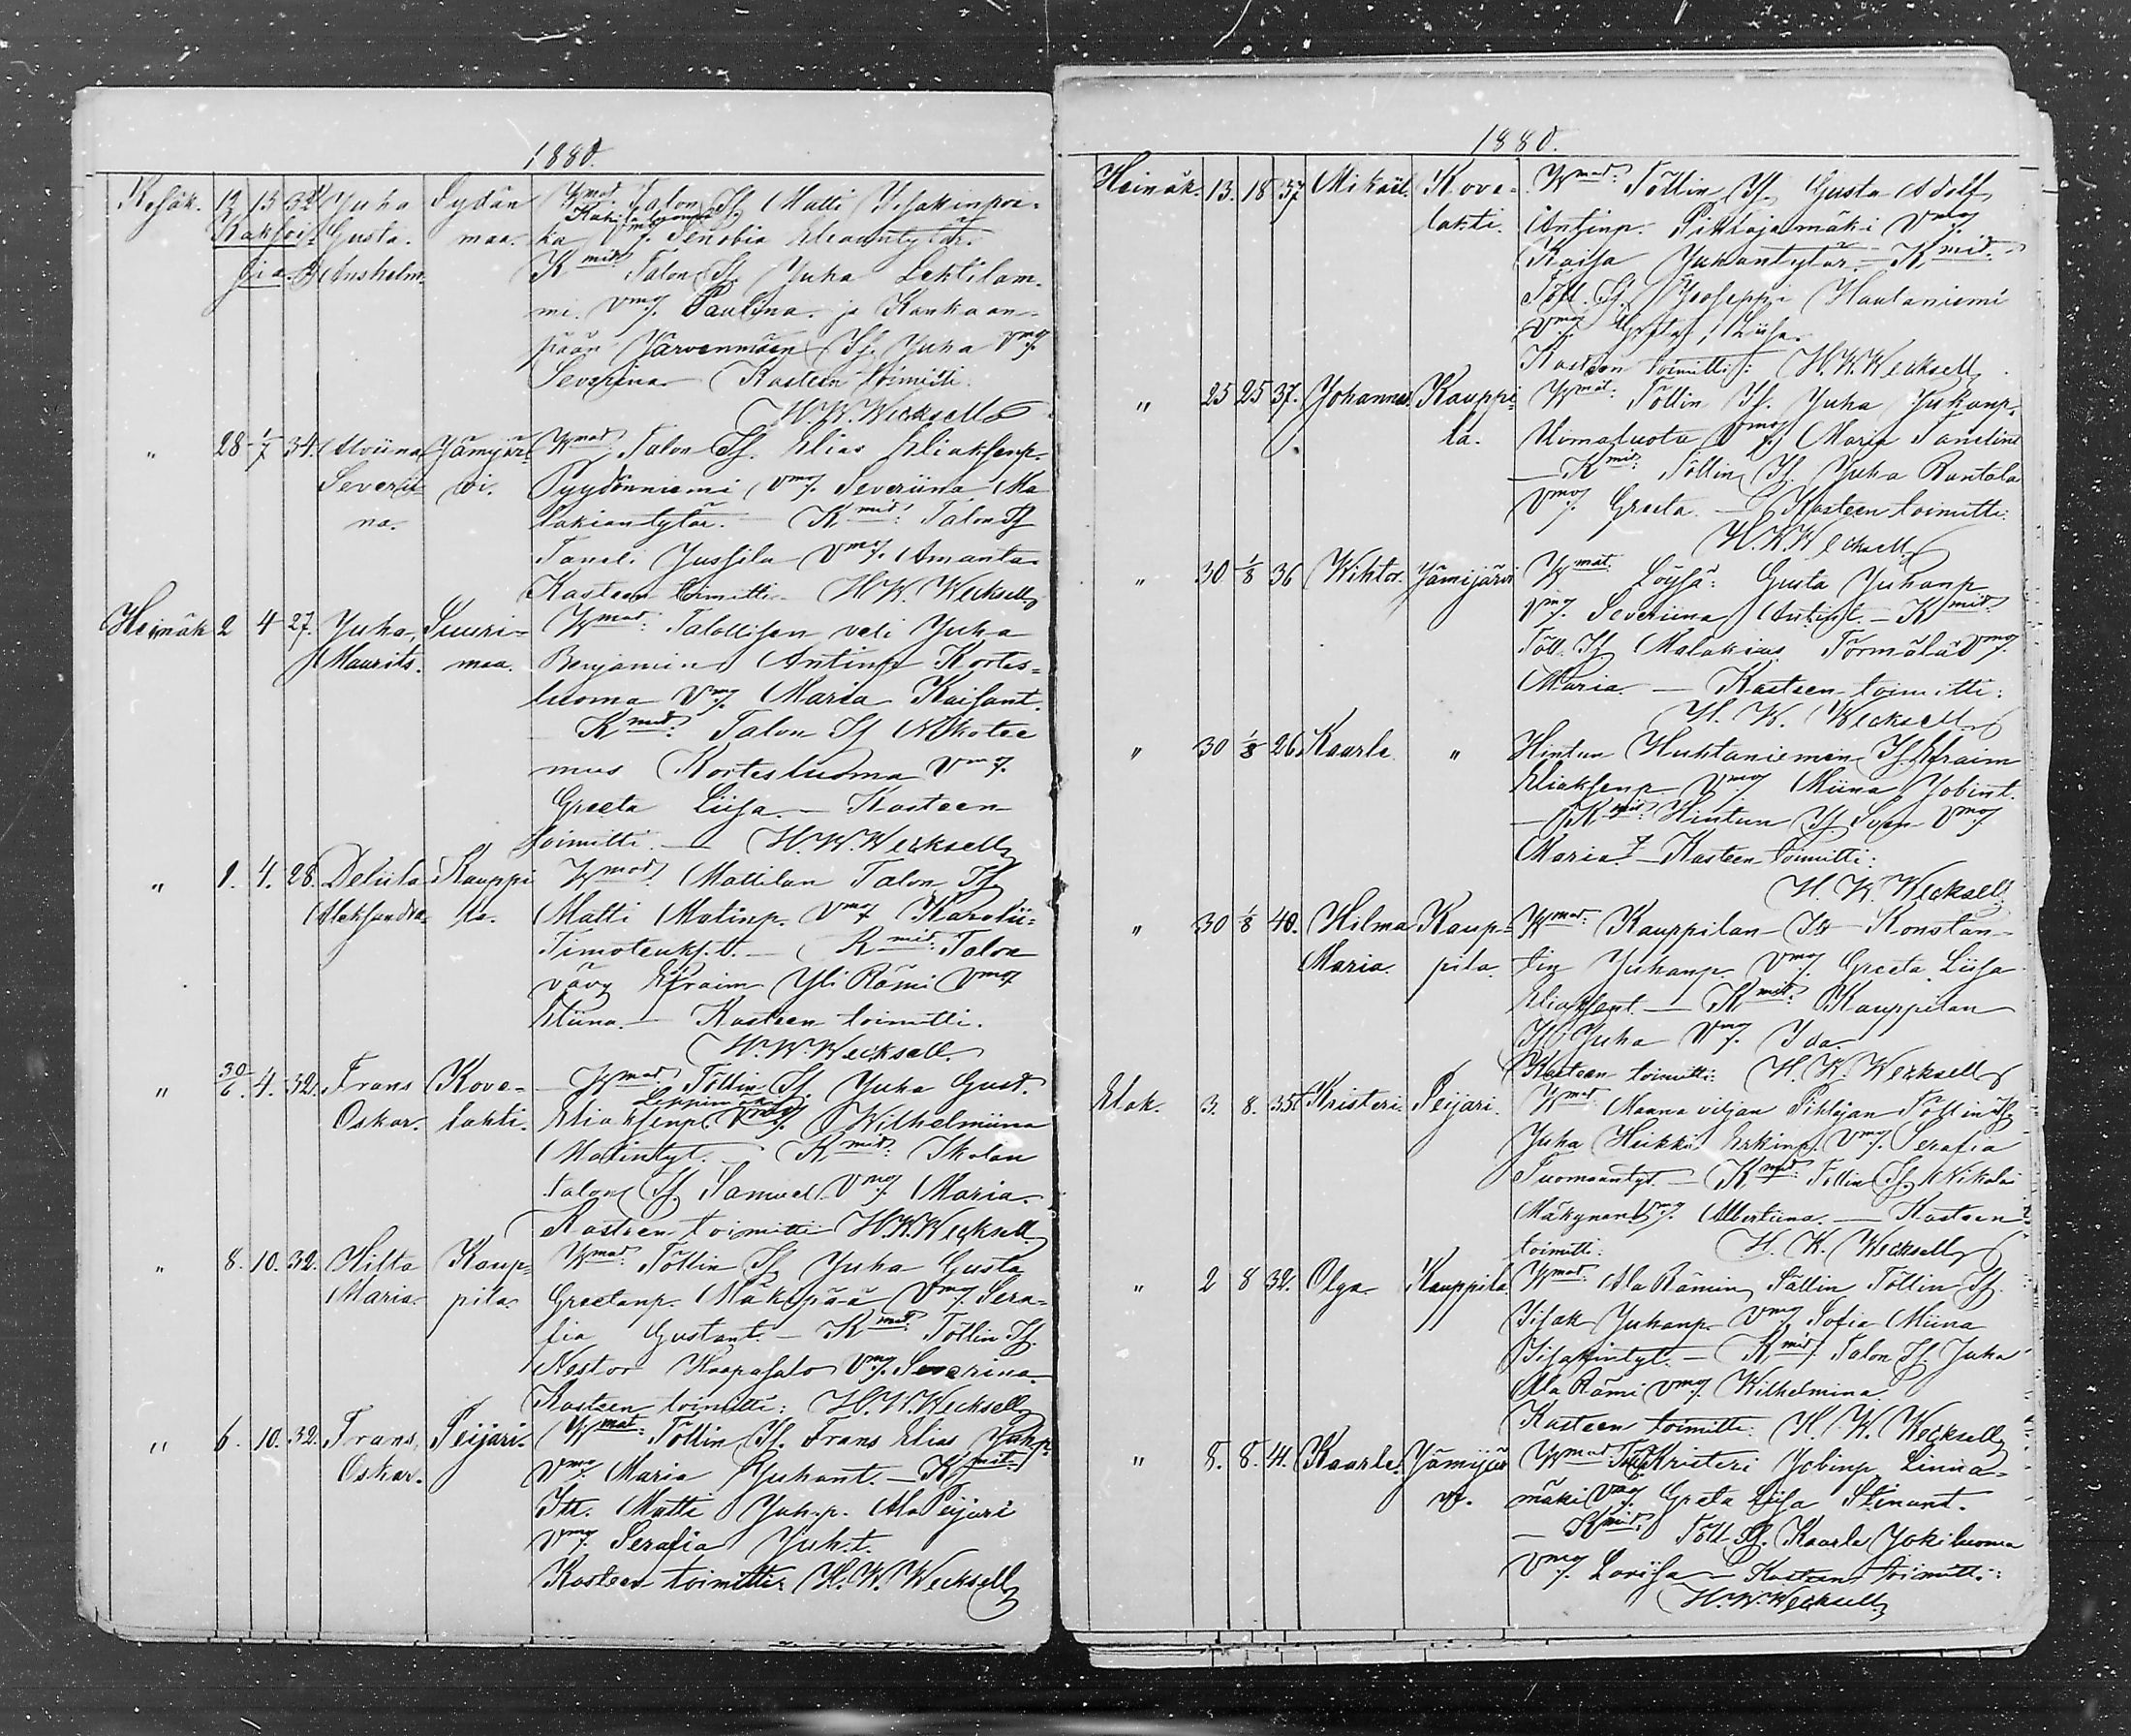 1880.
Kesäk. 12 13 32 Juha Sydän Wmat. Talon Is. Matti Isakinpoi-
Kaksoi- Gusta. maa. ka Vmo. Senobia Eliaantytär.
sia. Ansholm. Kmid. Talon Is. Juha Lehtilam-
mi. Vmo. Paulina. ja Kankaan-
pään Järvenmäen Is. Juha Vmo.
Severina. Kasteen toimitti
H.W. Wecksell
" 28 1/7 34. Seve­rii- Jämijär- Wmat. Talon Is. Elias Eliaksenp.
na. wi. Pyydönniemi, Vmo. Severiina Ma-
lakiantytär. — Kmid. Talon Is.
Taneli Jussila Vmo. Amanta
Kasteen toimitti H.W. Wecksell
Heinäk 2 4 27. Juha Suuri- Wmat. Talollisen veli Juha
Maurits. maa. Benjamin Antinp. Kortes-
luoma Vmo. Maria Kaisant.
Kmid. Talon Is. Nikote
mus Kortesluoma Vmo.
Greeta Liisa. — Kasteen
toimitti. — H.W. Wecksell
" 1. 4. 28. Deliila Kauppi Wmat. Mattilan Talon Is.
Aleksandra. la. Matti Matinp. Vmo. Karolii-
Timoteuks.t. — Kmid. Talon
vävy Efraim Yli Rämi Vmo.
Eliina. — Kasteen toimitti.
H.W. Wecksell.
" 30/6. 4. 32. Frans Kove- Wmat. Töllin Is. Juha Gust.
Oskar. lahti. Eliaksenp. Leppimäki Vmo. Wilhelmiina
Matintyt. — Kmid. Skolan
Talon Is. Samuel Vmo. Maria.
Kasteen toimitti H.W. Wecksell
" 8. 10. 32. Hilta Kaup- Wmat. Töllin Is. Juha Gusta
Maria. pila. Greetanp. Mäkipää Vmo. Sera-
fia Gustant. — Kmid. Töllin Is.
Nestor Haapasalo Vmo. Severina.
Kasteen toimitti: H.W. Wecksell
" 6. 10. 32. Frans Peijari. Wmat. Töllin Is. Frans Elias Juhp.
Oskar. Vmo. Maria Juhant. — Kmid.
Itt. Matti Juh.p. Ala Peijari
Vmo. Serafia Juh.t.
Kasteen toimitti: H.W. Wecksell
1880.
Heinäk. 13. 18 37 Mikael. Kove- Wmat. Töllin Is. Gusta Adolf
lahti. Antinp. Pihlajamäki Vmo.
Kaisa Juhantytär. — Kmid.
Töll. Is. Jooseppi Hautaniemi
Vmo. Greta Liisa.
Kasteen toimitti: H.W. Wecksell
" 25 25 37. Johannes. Kauppi- Wmat. Töllin Is. Juha Juhanp.
la. Uimaluota Vmo. Maria Tanelint
— Kmid. Töllin Is. Juha Rantala
Vmo. Greeta. — Kasteen toimitti:
H.W. Wecksell
" 30 1/8 36 Wihtor. Jämijärvi Wmat. Löysä: Gusta Juhanp
Vmo. Severiina Antint. — Kmid.
Töll. Is. Malakias Törmälä Vmo.
Maria. — Kasteen toimitti:
H. W. Wecksell
" 30 1/8 26 Kaarle. " Hintun Huhtaniemen Is. Efraim
Eliaksenp. Vmo. Miina Jobint.
— Kmid. Hintun Is. Sven Vmo.
Maria. — Kasteen toimitti:
H. W. Wecksell
" 30 1/8 40. Hilma Kaup- Wmat. Kauppilan Itt. Konstan-
Maria. pila. tin Juhanp. Vmo. Greeta Liisa
Eliaksent. — Kmid. Kauppilan
Is. Juha Vmo. Ida.
Kasteen toimitti: H. W. Wecksell
Elok. 3. 8. 35. Kristeri. Peijari. Wmat. Maana viljan Pihlajan Töllin Is.
Juha Heikki Erkinp. Vmo. Serafia
Tuomaantyt. — Kmid. Töllin Is. Nikolai
Mäkynen Vmo. Albertiina. — Kasteen
toimitti: H. W. Wecksell
" 2 8 32. Olga. Kauppila Wmat. Ala Rämin Sällin Töllin Is.
Isak Juhanp. Vmo. Sofia Miina
Isakintyt. — Kmid. Talon Is. Juha
Ala Rämi Vmo. Wilhelmina
Kasteen toimitti: H. W. Wecksell
" 8. 8. 41. Kaarle. Jämijär Wmat. Töll. Kristeri Jobinp. Linna-
vi. mäki Vmo. Greta Liisa Simunt.
— Kmid. Töll. Is. Kaarle Jokiluoma
Vmo. Lovisa — Kasteen toimitti:
H.W. Wecksell